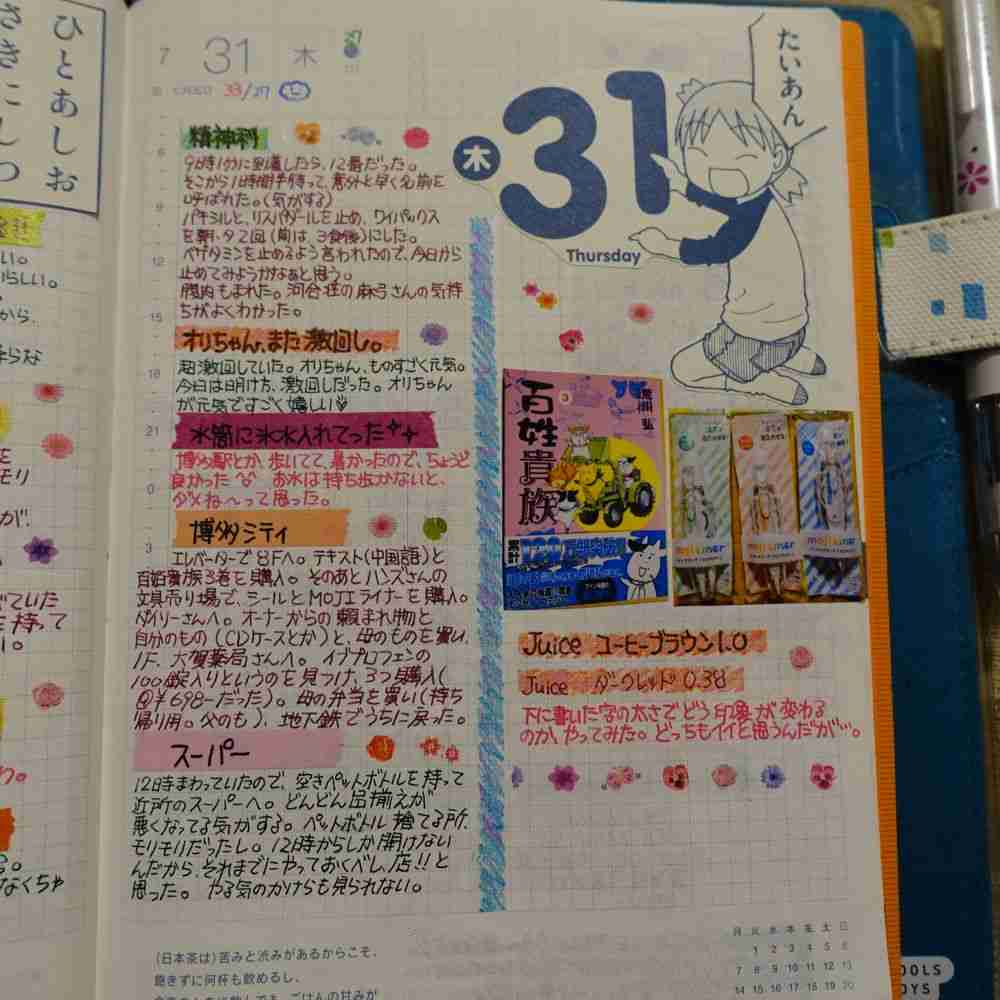 ひとあしお
さきにしつ
7 31 木
33/27
精神科
9時1分に到着したら、12番だった。
そこから1時間半待って、意外と早く名前を
呼ばれた。(気がする)
パキシルと、リスパダールを止め、ワイパックス
を朝・夕2回(前は、3食後)にした。
ベゲタミンを止めるよう言われたので、今日から
止めてみようかなぁと思う。
腹肉もまれた。河合荘の麻弓さんの気持
ちがよくわかった。
オリちゃん、また激回し。
超激回していた。オリちゃん、ものすごく元気。
今日は明け方、激回しだった。オリちゃん
が元気ですごく嬉しい
水筒に氷水入れてった
博多駅とか、歩いてて、暑かったので、ちょうど
良かった お水は持ち歩かないと、
ダメね〜って思った。
博多シティ
エレベーターで8Fへ。テキスト(中国語)と
百姓貴族3巻を購入。そのあとハンズさんの
文具売り場で、シールとMOJIライナーを購入。
ダイソーさんへ。オーナーからの頼まれ物と
自分のもの(CDケースとか)と、母のものを買い、
1F、大賀薬局さんへ。イブプロフェンの
100錠入りというのを見つけ、3つ購入(
@¥698-だった)。母の弁当を買い(持ち
帰り用。父のも)、地下鉄でうちに戻った。
スーパー
12時まわっていたので、空きペットボトルを持って
近所のスーパーへ。どんどん品揃えが
悪くなってる気がする。ペットボトル捨てる所、
モリモリだったし。12時からしか開けない
んだから、それまでにやっておくべし、店!!と
思った。やる気のかけらも見られない。
6
9
12
15
18
21
0
3
木
31
Thursday
たいあん
百姓貴族
3
荒川 弘
累計
mojiliner
mojiliner
mojiliner
Juice コーヒーブラウン1.0
Juice ダークレッド 0.38
下に書いた字の太さでどう印象が変わる
のか、やってみた。どっちもイイと思うんだが…。
(日本茶は)苦みと渋みがあるからこそ、
飽きずに何杯も飲めるし、
月 火 水 木 金 土 日
1 2 3 4 5 6
7 8 9 10 11 12 13
14 15 16 17 18 19 20
OOLS
OYS